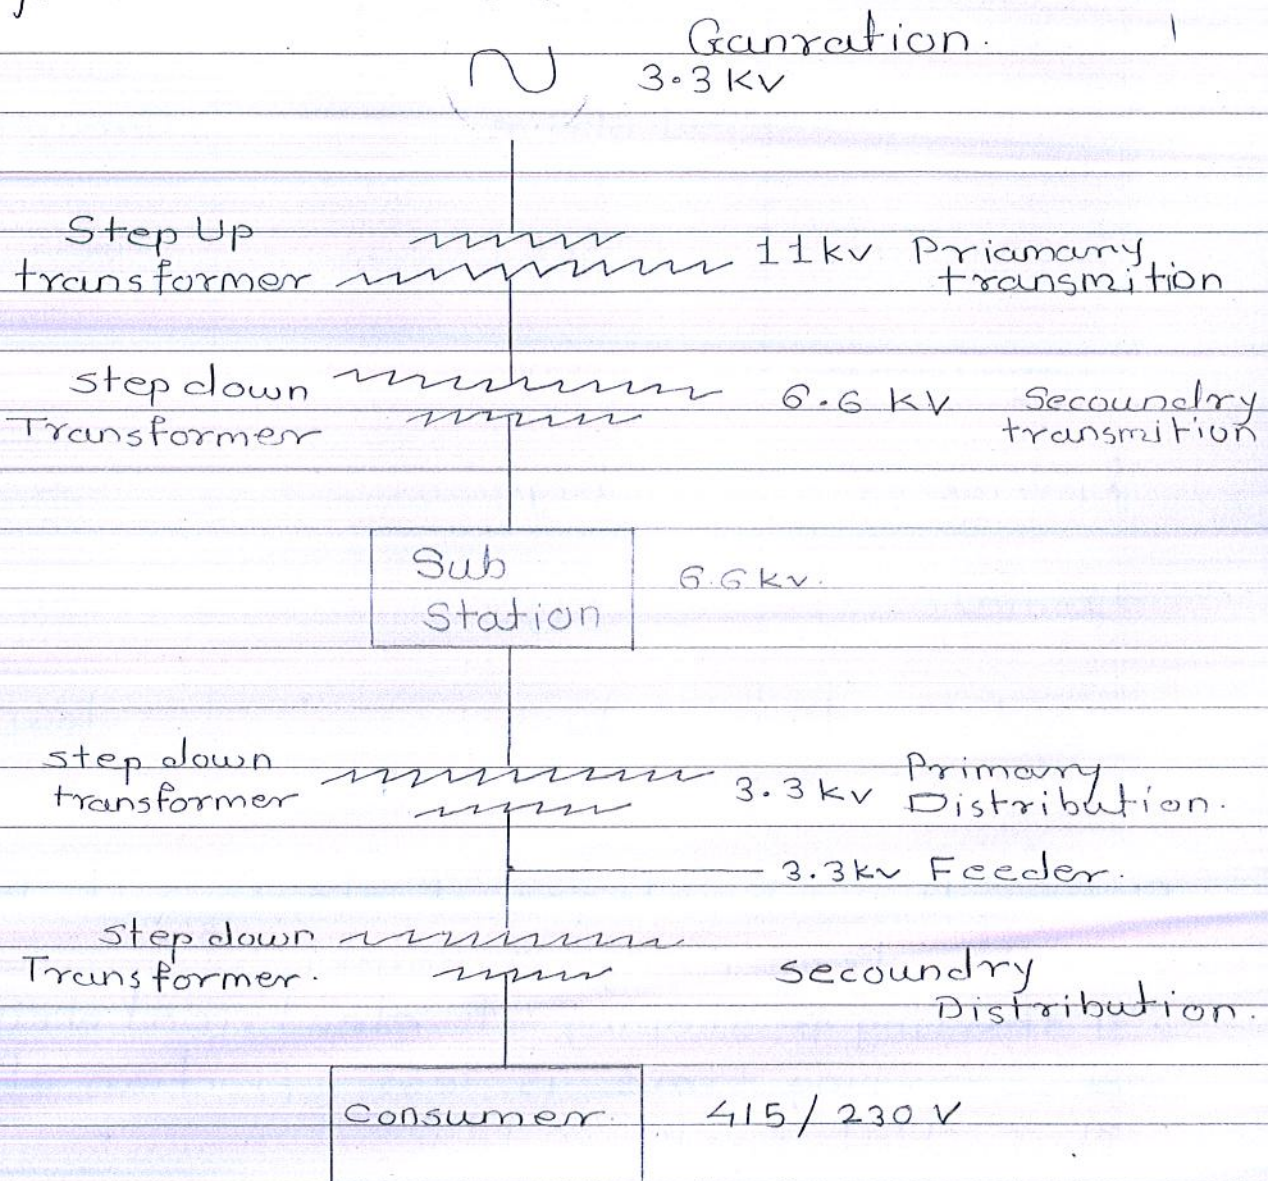 Ganration.
3.3 KV
Step Up
transformer
11kv Priamary
transmition
step down
Transformer
6.6 KV Secoundry
transmition
Sub
Station
6.6 kv.
step down
transformer
3.3 kv Primary
Distribution.
3.3kv Feeder.
Step down
Transformer.
secoundry
Distribution.
Consumer.
415/230 V